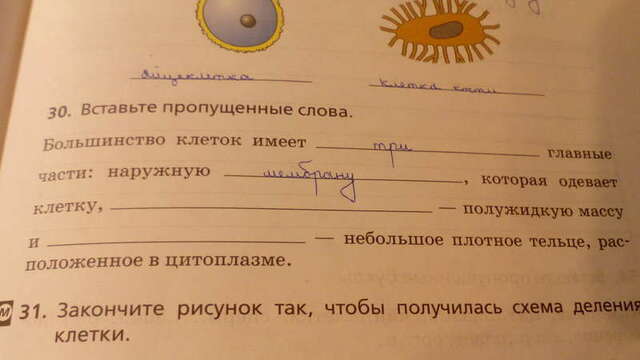 яйцеклетка клетка кости
30. Вставьте пропущенные слова.
Большинство клеток имеет три главные
части: наружную мембрану, которая одевает
клетку, — полужидкую массу
и — небольшое плотное тельце, рас-
положенное в цитоплазме.
М 31. Закончите рисунок так, чтобы получилась схема деления
клетки.